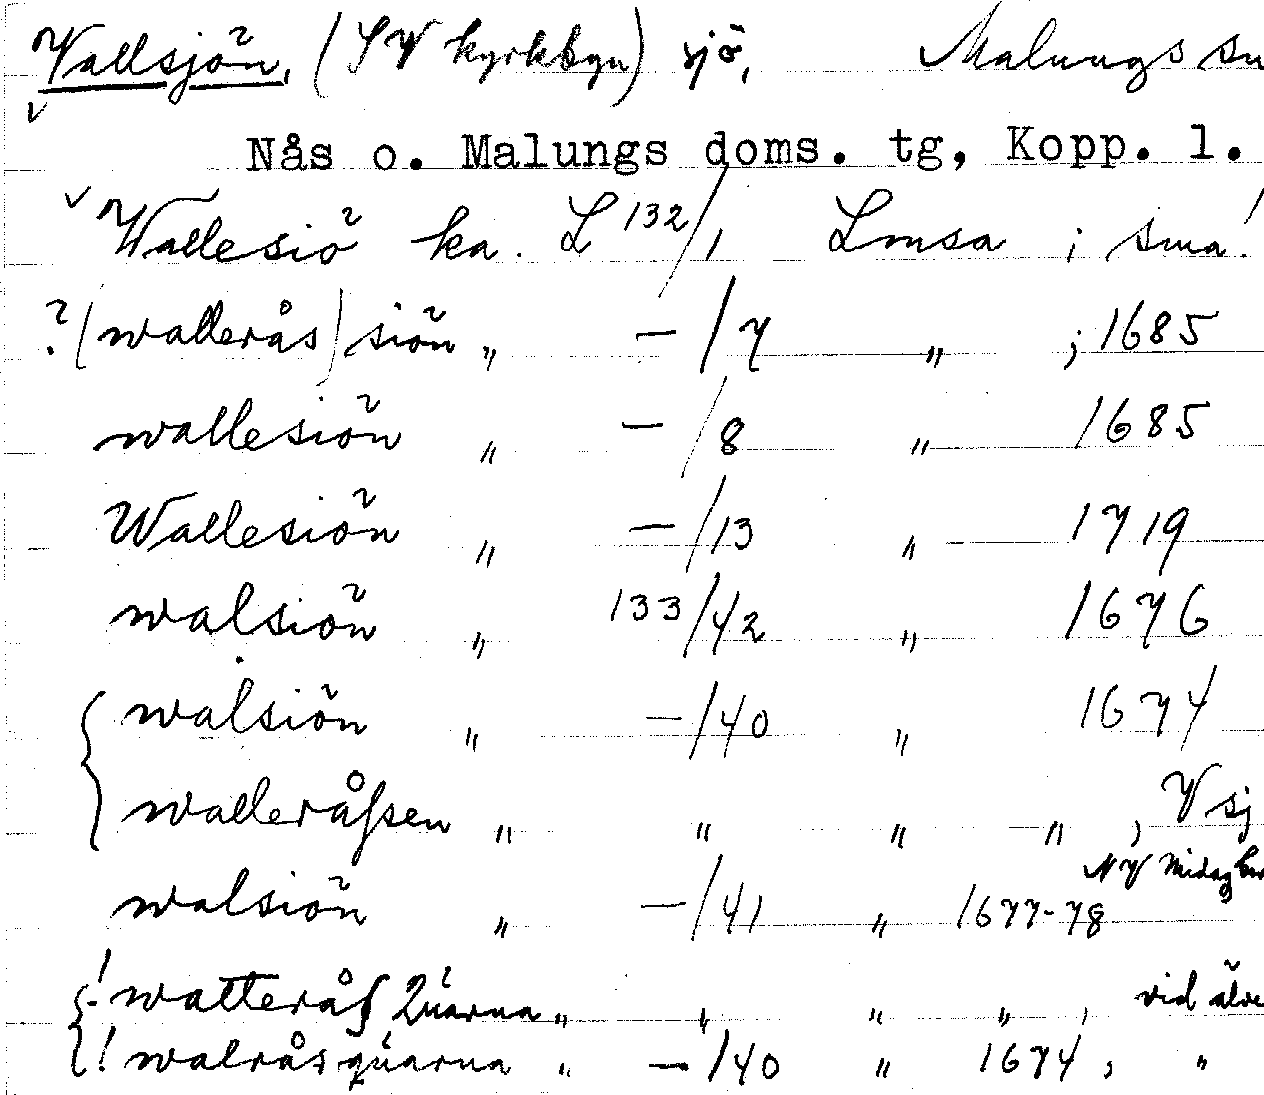 Vallsjön, (SV kyrkbyn) sjö, Malungs sn
Nås o. Malungs doms. tg, Kopp. l.
Wallesiö ka. L 132/1 Lmsa ; sma!
? (wallerås) siön " - /7 " ; 1685
wallesiön " - /8 " 1685
Wallesiön " - /13 " 1719
walsiön " 133/42 " 1676
walsiön " - /40 " 1674
walleråssen " " " " , V sj
NV Midag
walsiön " - /41 " 1677-78
! watterås Quarna " " " " , vid älve
! walrås quarna " - /40 " 1674, "